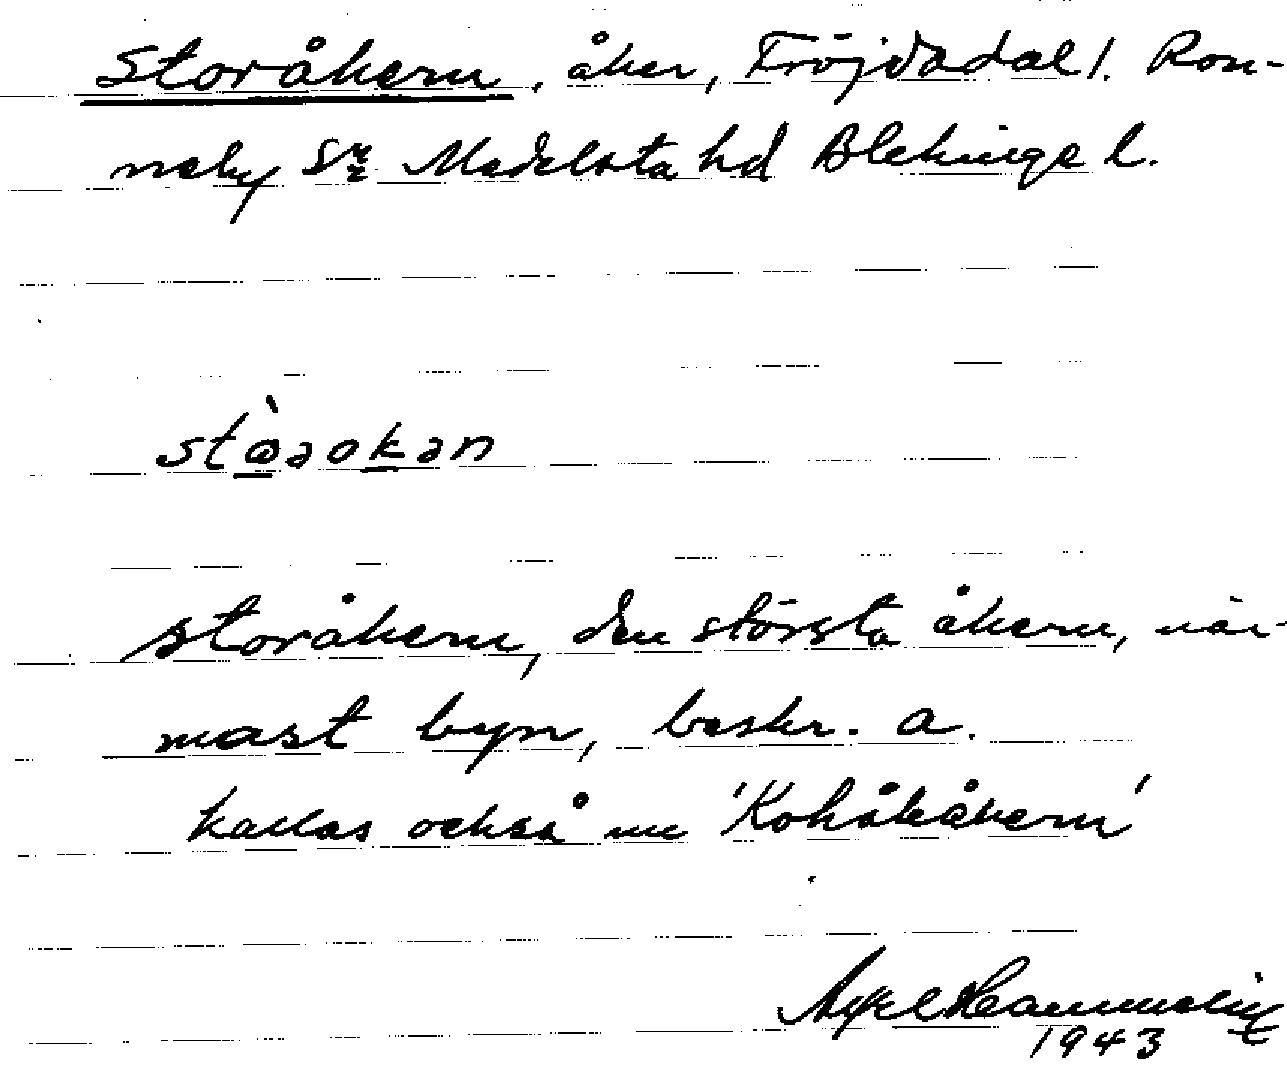 Storåkern, åker, Fröjdadal 1. Ron-
neby Sn Medelsta hd Blekinge l.
stòəokən
storåkern, den största åkern, när-
mast byn, beskr. a.
kallas också nu 'Kohåkåkern'
Axel
1943